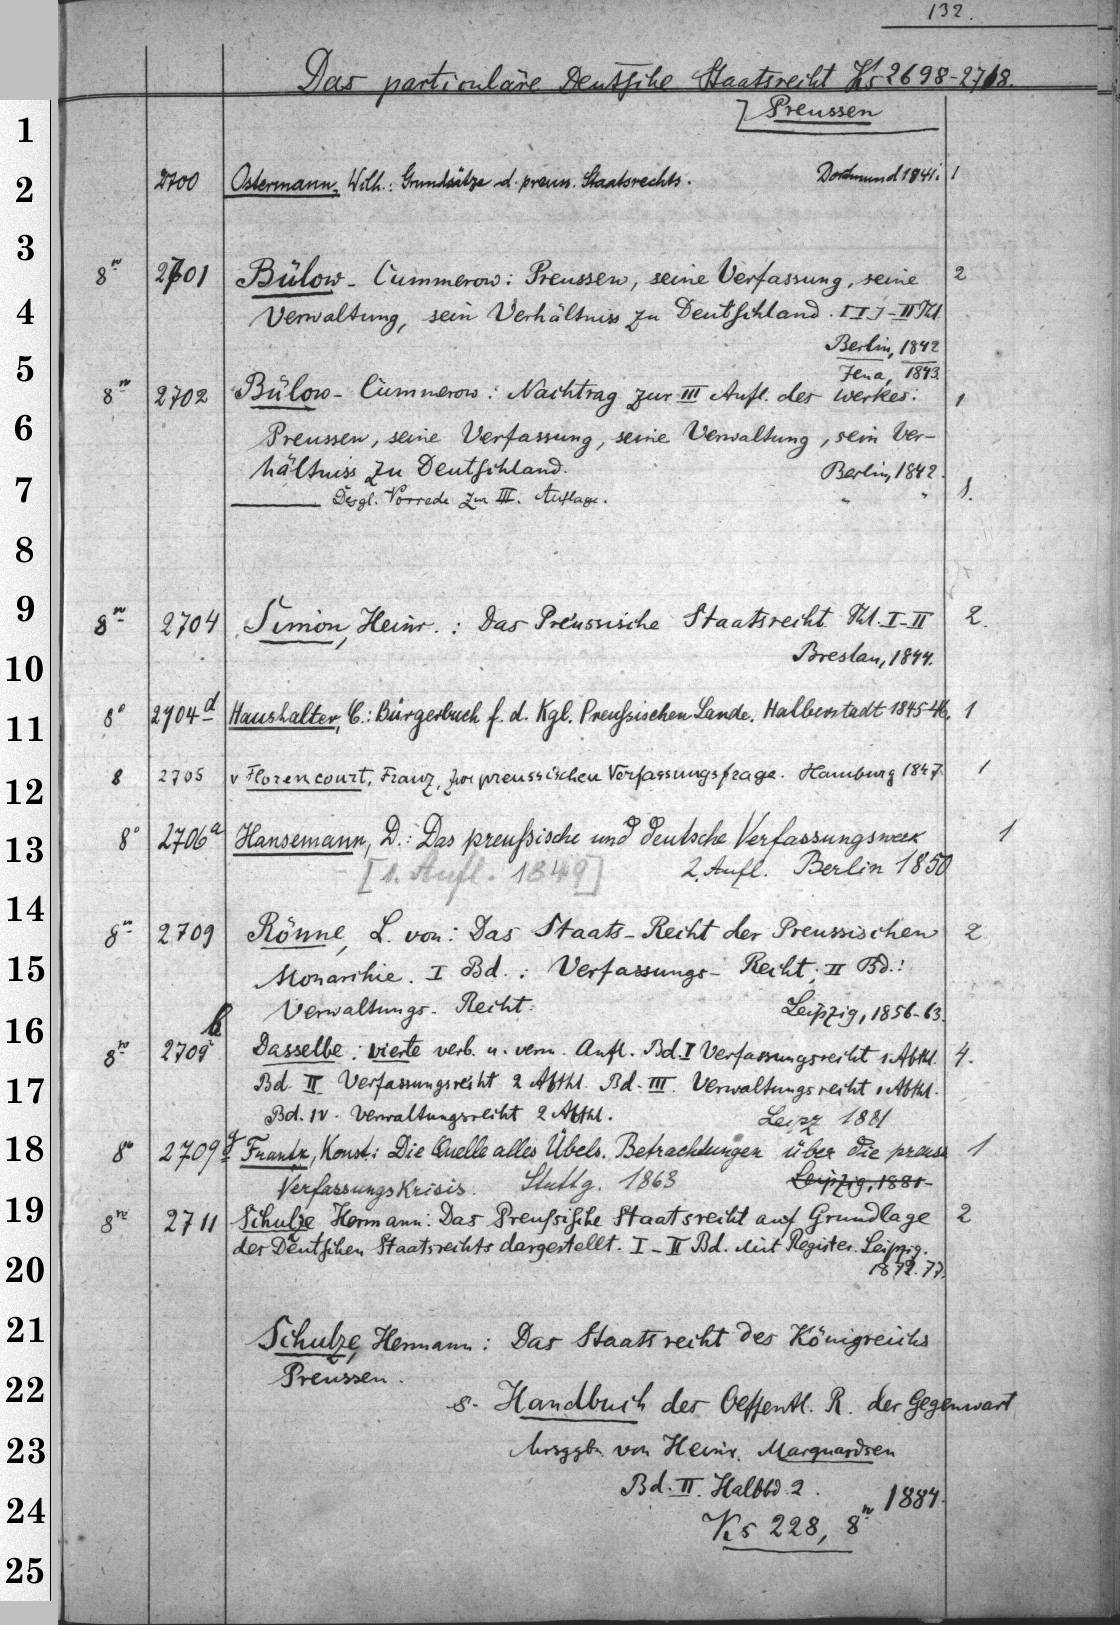 132.
Das particuläre Deutsche Staatsrecht Ks 2698-2718.
Preussen
1
2 2700 Ostermann, Wilh.: Grundsätze d. preuss. Staatsrechts. Dortmund 1841. 1
3
8° 2701 Bülow-Cummerow: Preussen, seine Verfassung, seine 2
4 Verwaltung, sein Verhältniss zu Deutschland. [I]-II Thl.
Berlin, 1842
5 Jena, 1843.
8° 2702 Bülow-Cummerow: Nachtrag zur III Aufl. des Werkes: 1
6 Preussen, seine Verfassung, seine Verwaltung, sein Ver-
hältniss zu Deutschland. Berlin, 1842.
7 ——— Desgl. Vorrede zur III. Auflage. " " 1.
8
9 8° 2704 Simon, Heinr.: Das Preussische Staatsrecht Thl. I-II 2.
10 Breslau, 1844.
11 8° 2704d Haushalter, C.: Bürgerbuch f. d. Kgl. Preußischen Lande. Halberstadt 1845-46. 1
12 8 2705 v Florencourt, Franz, zur preussischen Verfassungsfrage. Hamburg 1847. 1
13 8° 2706a Hansemann, D.: Das preußische und deutsche Verfassungswerk 1
[1. Aufl. 1849] 2. Aufl. Berlin 1850
14
8° 2709 Rönne, L. von: Das Staats-Recht der Preussischen 2
15 Monarchie. I Bd.: Verfassungs-Recht; II Bd.:
Verwaltungs-Recht. Leipzig, 1856-63.
16 8° 2709b Dasselbe: vierte verb. u. verm. Aufl. Bd. I Verfassungsrecht 1 Abthl. 4.
17 Bd. II Verfassungsrecht 2 Abthl. Bd. III. Verwaltungsrecht 1 Abthl.
Bd. IV. Verwaltungsrecht 2 Abthl. Leipz 1881
18 8° 2709g Frantz, Konst.: Die Quelle alles Übels. Betrachtungen über die preuss 1
Verfassungskrisis. Stuttg. 1863 Leipzig, 1881-
19 8° 2711 Schulze Hermann: Das Preußische Staatsrecht auf Grundlage 2
des Deutschen Staatsrechts dargestellt. I-II Bd. Mit Register. Leipzig.
20 1872. 77.
21 Schulze, Hermann: Das Staatsrecht des Königreichs
22 Preussen.
s. Handbuch des Oeffentl. R. der Gegenwart
23 hrsggbn von Heinr. Marquardsen
Bd. II. Halbbd 2. 1884.
24 Ks 228, 8°
25